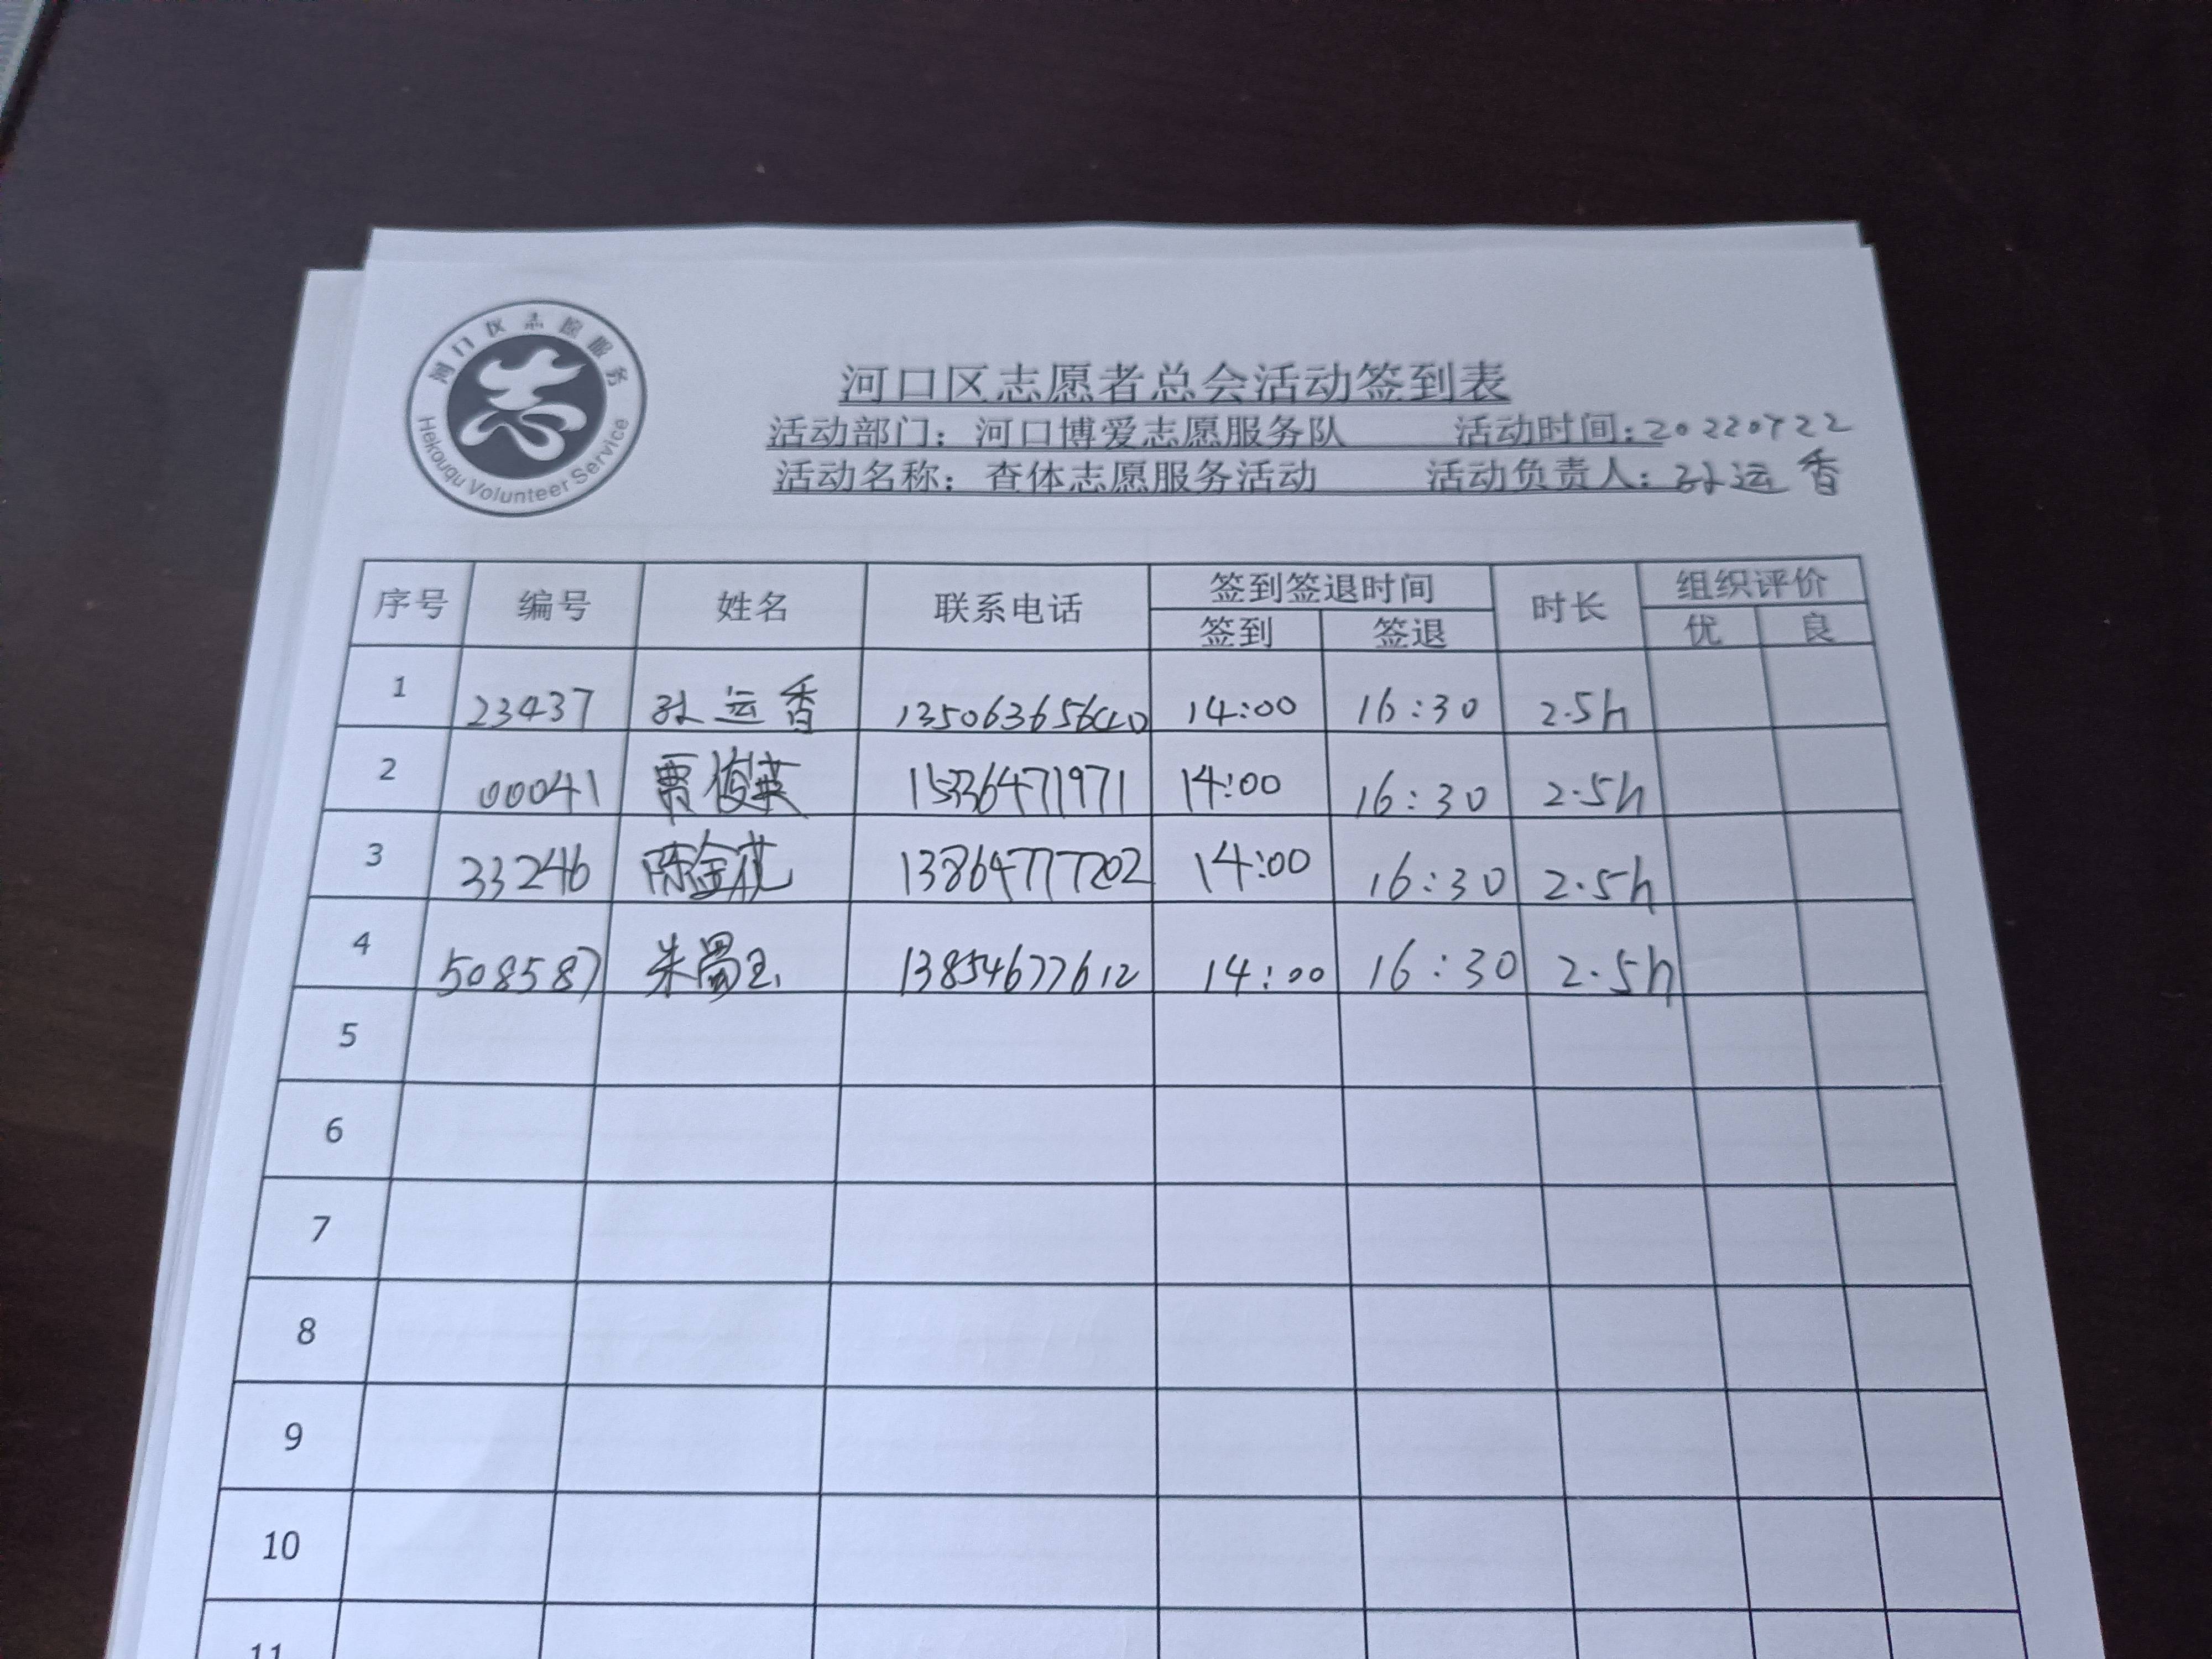 河口区志愿服务
Hekouqu Volunteer Service
河口区志愿者总会活动签到表
活动部门：河口博爱志愿服务队 活动时间：20220722
活动名称：查体志愿服务活动 活动负责人：孙运香
序号 编号 姓名 联系电话 签到签退时间 时长 组织评价
签到 签退 优 良
1 23437 孙运香 14:00 16:30 2.5h
2 00041 贾俊英 15336471971 14:00 16:30 2.5h
3 33246 陈金花 13864777202 14:00 16:30 2.5h
4 508587 朱 13854677612 14:00 16:30 2.5h
5
6
7
8
9
10
11